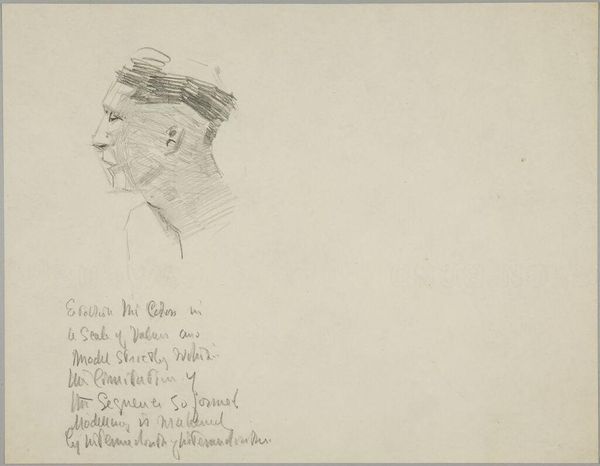 Establish the Colors in
a Scale of Values and
Model Strictly Within
the limitation of
the Sequence so formed
Modelling is
by